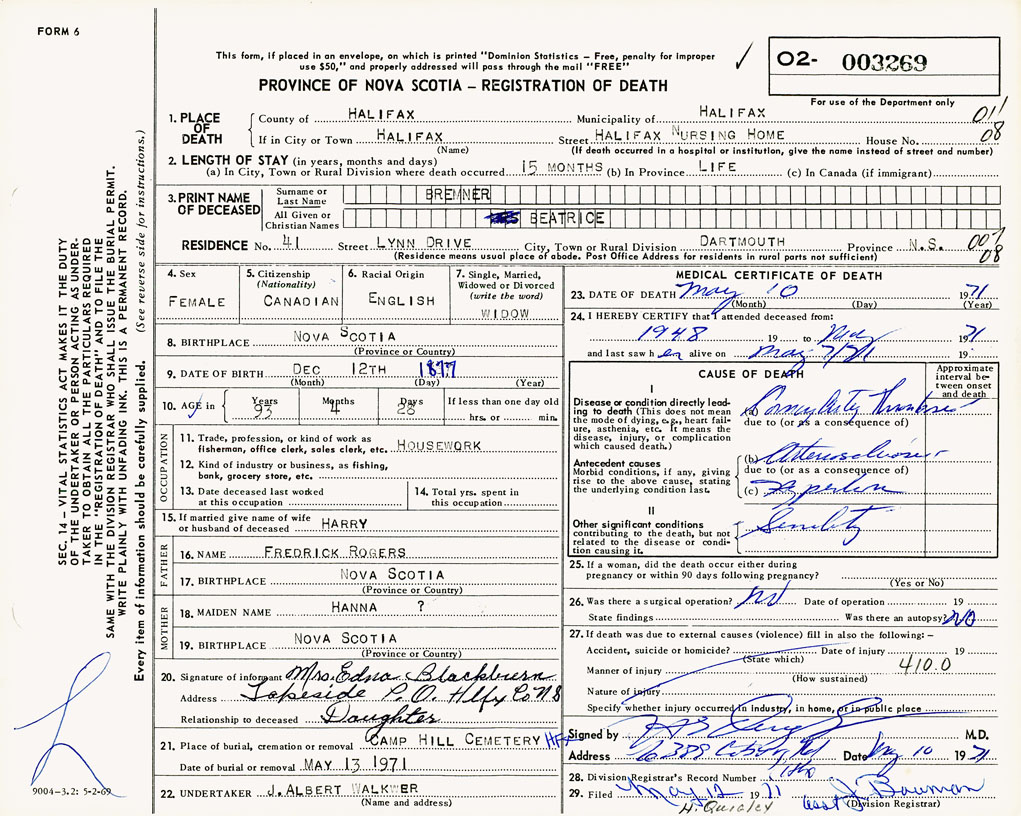 FORM 6
This form, if placed in an envelope, on which is printed "Dominion Statistics – Free, penalty for improper
use $50," and properly addressed will pass through the mail "FREE"
O2- 003269
PROVINCE OF NOVA SCOTIA – REGISTRATION OF DEATH
For use of the Department only
1. PLACE OF DEATH
County of HALIFAX Municipality of HALIFAX 011
If in City or Town HALIFAX Street HALIFAX NURSING HOME House No. 08
(Name) (If death occurred in a hospital or institution, give the name instead of street and number)
2. LENGTH OF STAY (in years, months and days)
(a) In City, Town or Rural Division where death occurred 15 MONTHS (b) In Province LIFE (c) In Canada (if immigrant)
3. PRINT NAME OF DECEASED
Surname or Last Name BREMNER
All Given or Christian Names BEATRICE
RESIDENCE No. 41 Street LYNN DRIVE City, Town or Rural Division DARTMOUTH Province N.S. 007
(Residence means usual place of abode. Post Office Address for residents in rural parts not sufficient) 08
4. Sex
FEMALE
5. Citizenship
(Nationality)
CANADIAN
6. Racial Origin
ENGLISH
7. Single, Married,
Widowed or Divorced
(write the word)
WIDOW
8. BIRTHPLACE NOVA SCOTIA
(Province or Country)
9. DATE OF BIRTH DEC 12TH 1877
(Month) (Day) (Year)
10. AGE in
Years Months Days If less than one day old
93 4 28 hrs. or min.
OCCUPATION
11. Trade, profession, or kind of work as
fisherman, office clerk, sales clerk, etc. HOUSEWORK
12. Kind of industry or business, as fishing,
bank, grocery store, etc.
13. Date deceased last worked
at this occupation
14. Total yrs. spent in
this occupation
15. If married give name of wife
or husband of deceased HARRY
FATHER
16. NAME FREDRICK ROGERS
17. BIRTHPLACE NOVA SCOTIA
(Province or Country)
MOTHER
18. MAIDEN NAME HANNA ?
19. BIRTHPLACE NOVA SCOTIA
(Province or Country)
20. Signature of informant Mrs. Edna Blackburn
Address Lakeside P.O. Hlfx Co NS
Relationship to deceased Daughter
21. Place of burial, cremation or removal CAMP HILL CEMETERY HFX
Date of burial or removal MAY 13 1971
22. UNDERTAKER J. ALBERT WALKWER
(Name and address)
MEDICAL CERTIFICATE OF DEATH
23. DATE OF DEATH May 10 1971
(Month) (Day) (Year)
24. I HEREBY CERTIFY that I attended deceased from:
1948 19 to May 1971
and last saw her alive on May 7/71 19
CAUSE OF DEATH
Approximate
interval be-
tween onset
and death
I
Disease or condition directly lead-
ing to death (This does not mean
the mode of dying, e.g., heart fail-
ure, asthenia, etc. It means the
disease, injury, or complication
which caused death.)
(a) Coronary Artery Thrombosis
due to (or as a consequence of)
Antecedent causes
Morbid conditions, if any, giving
rise to the above cause, stating
the underlying condition last.
(b) Arteriosclerosis
due to (or as a consequence of)
(c)
II
Other significant conditions
contributing to the death, but not
related to the disease or condi-
tion causing it.
Senility
25. If a woman, did the death occur either during
pregnancy or within 90 days following pregnancy?
(Yes or No)
26. Was there a surgical operation? No Date of operation 19
State findings Was there an autopsy? NO
27. If death was due to external causes (violence) fill in also the following: –
Accident, suicide or homicide? Date of injury 19
(State which)
Manner of injury 410.0
(How sustained)
Nature of injury
Specify whether injury occurred in industry, in home, or in public place
Signed by M.D.
Address 6388 Date May 10 1971
28. Division Registrar's Record Number
29. Filed May 12 1971 J. Bauman
H. Quigley (Division Registrar)
SEC. 14 – VITAL STATISTICS ACT MAKES IT THE DUTY
OF THE UNDERTAKER OR PERSON ACTING AS UNDER-
TAKER TO OBTAIN ALL THE PARTICULARS REQUIRED
IN THE "REGISTRATION OF DEATH" AND TO FILE THE
SAME WITH THE DIVISION REGISTRAR WHO SHALL ISSUE THE BURIAL PERMIT.
WRITE PLAINLY WITH UNFADING INK. THIS IS A PERMANENT RECORD.
Every item of information should be carefully supplied. (See reverse side for instructions.)
9004-3.2: 5-2-69